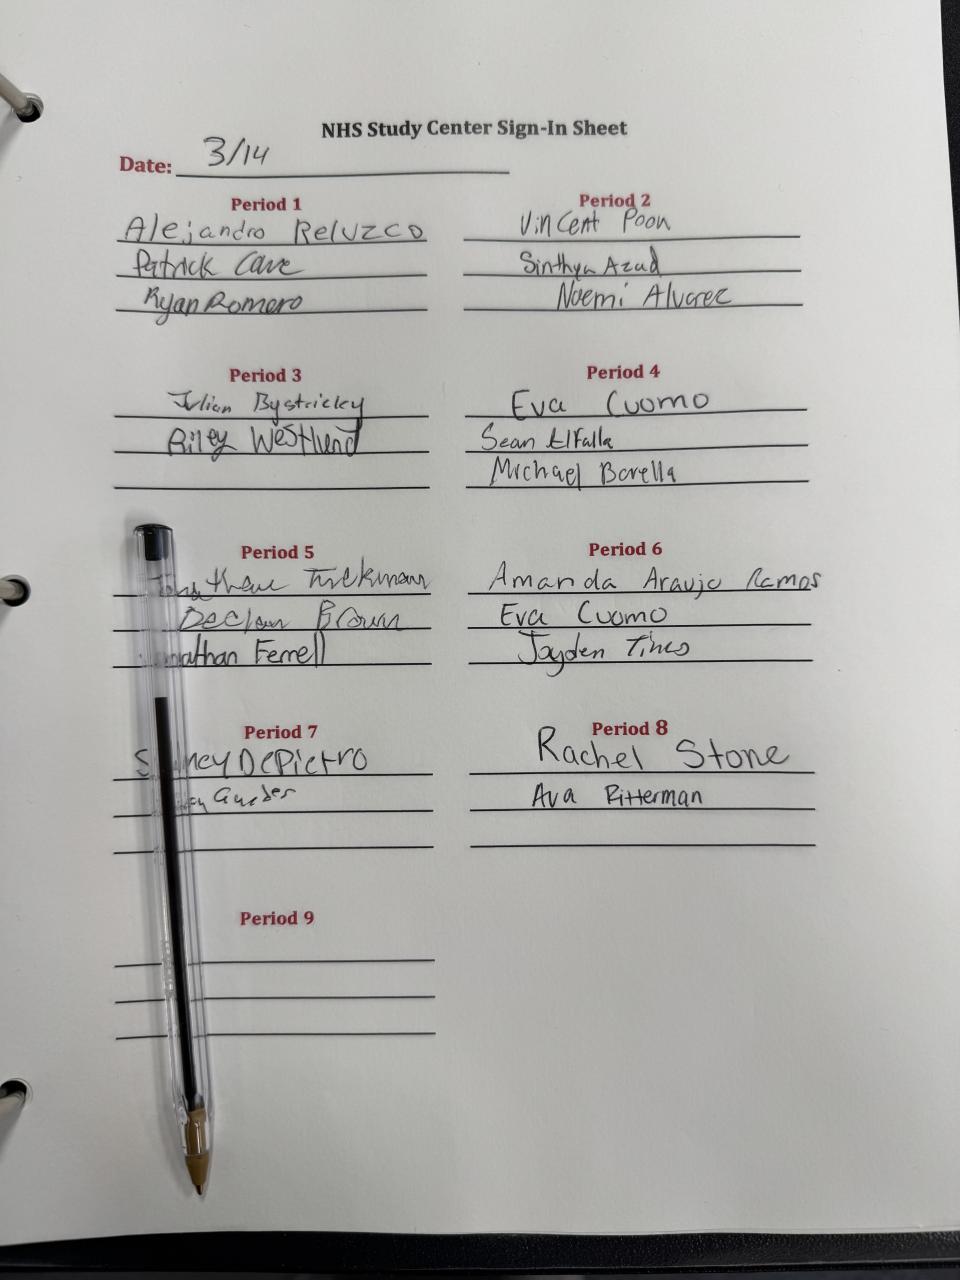 NHS Study Center Sign-In Sheet
Date: 3/14
Period 1
Alejandro Reluzco
Patrick Cave
Ryan Romero
Period 2
Vincent Poon
Sinthya Azad
Noemi Alvarez
Period 3
Julian Bystricky
Riley Westlund
Period 4
Eva Cuomo
Sean Elfalla
Michael Barella
Period 5
Declan Brown
Ferrell
Period 6
Amanda Araujo Ramos
Eva Cuomo
Jayden Tineo
Period 7
DePietro
Period 8
Rachel Stone
Ava Ritterman
Period 9